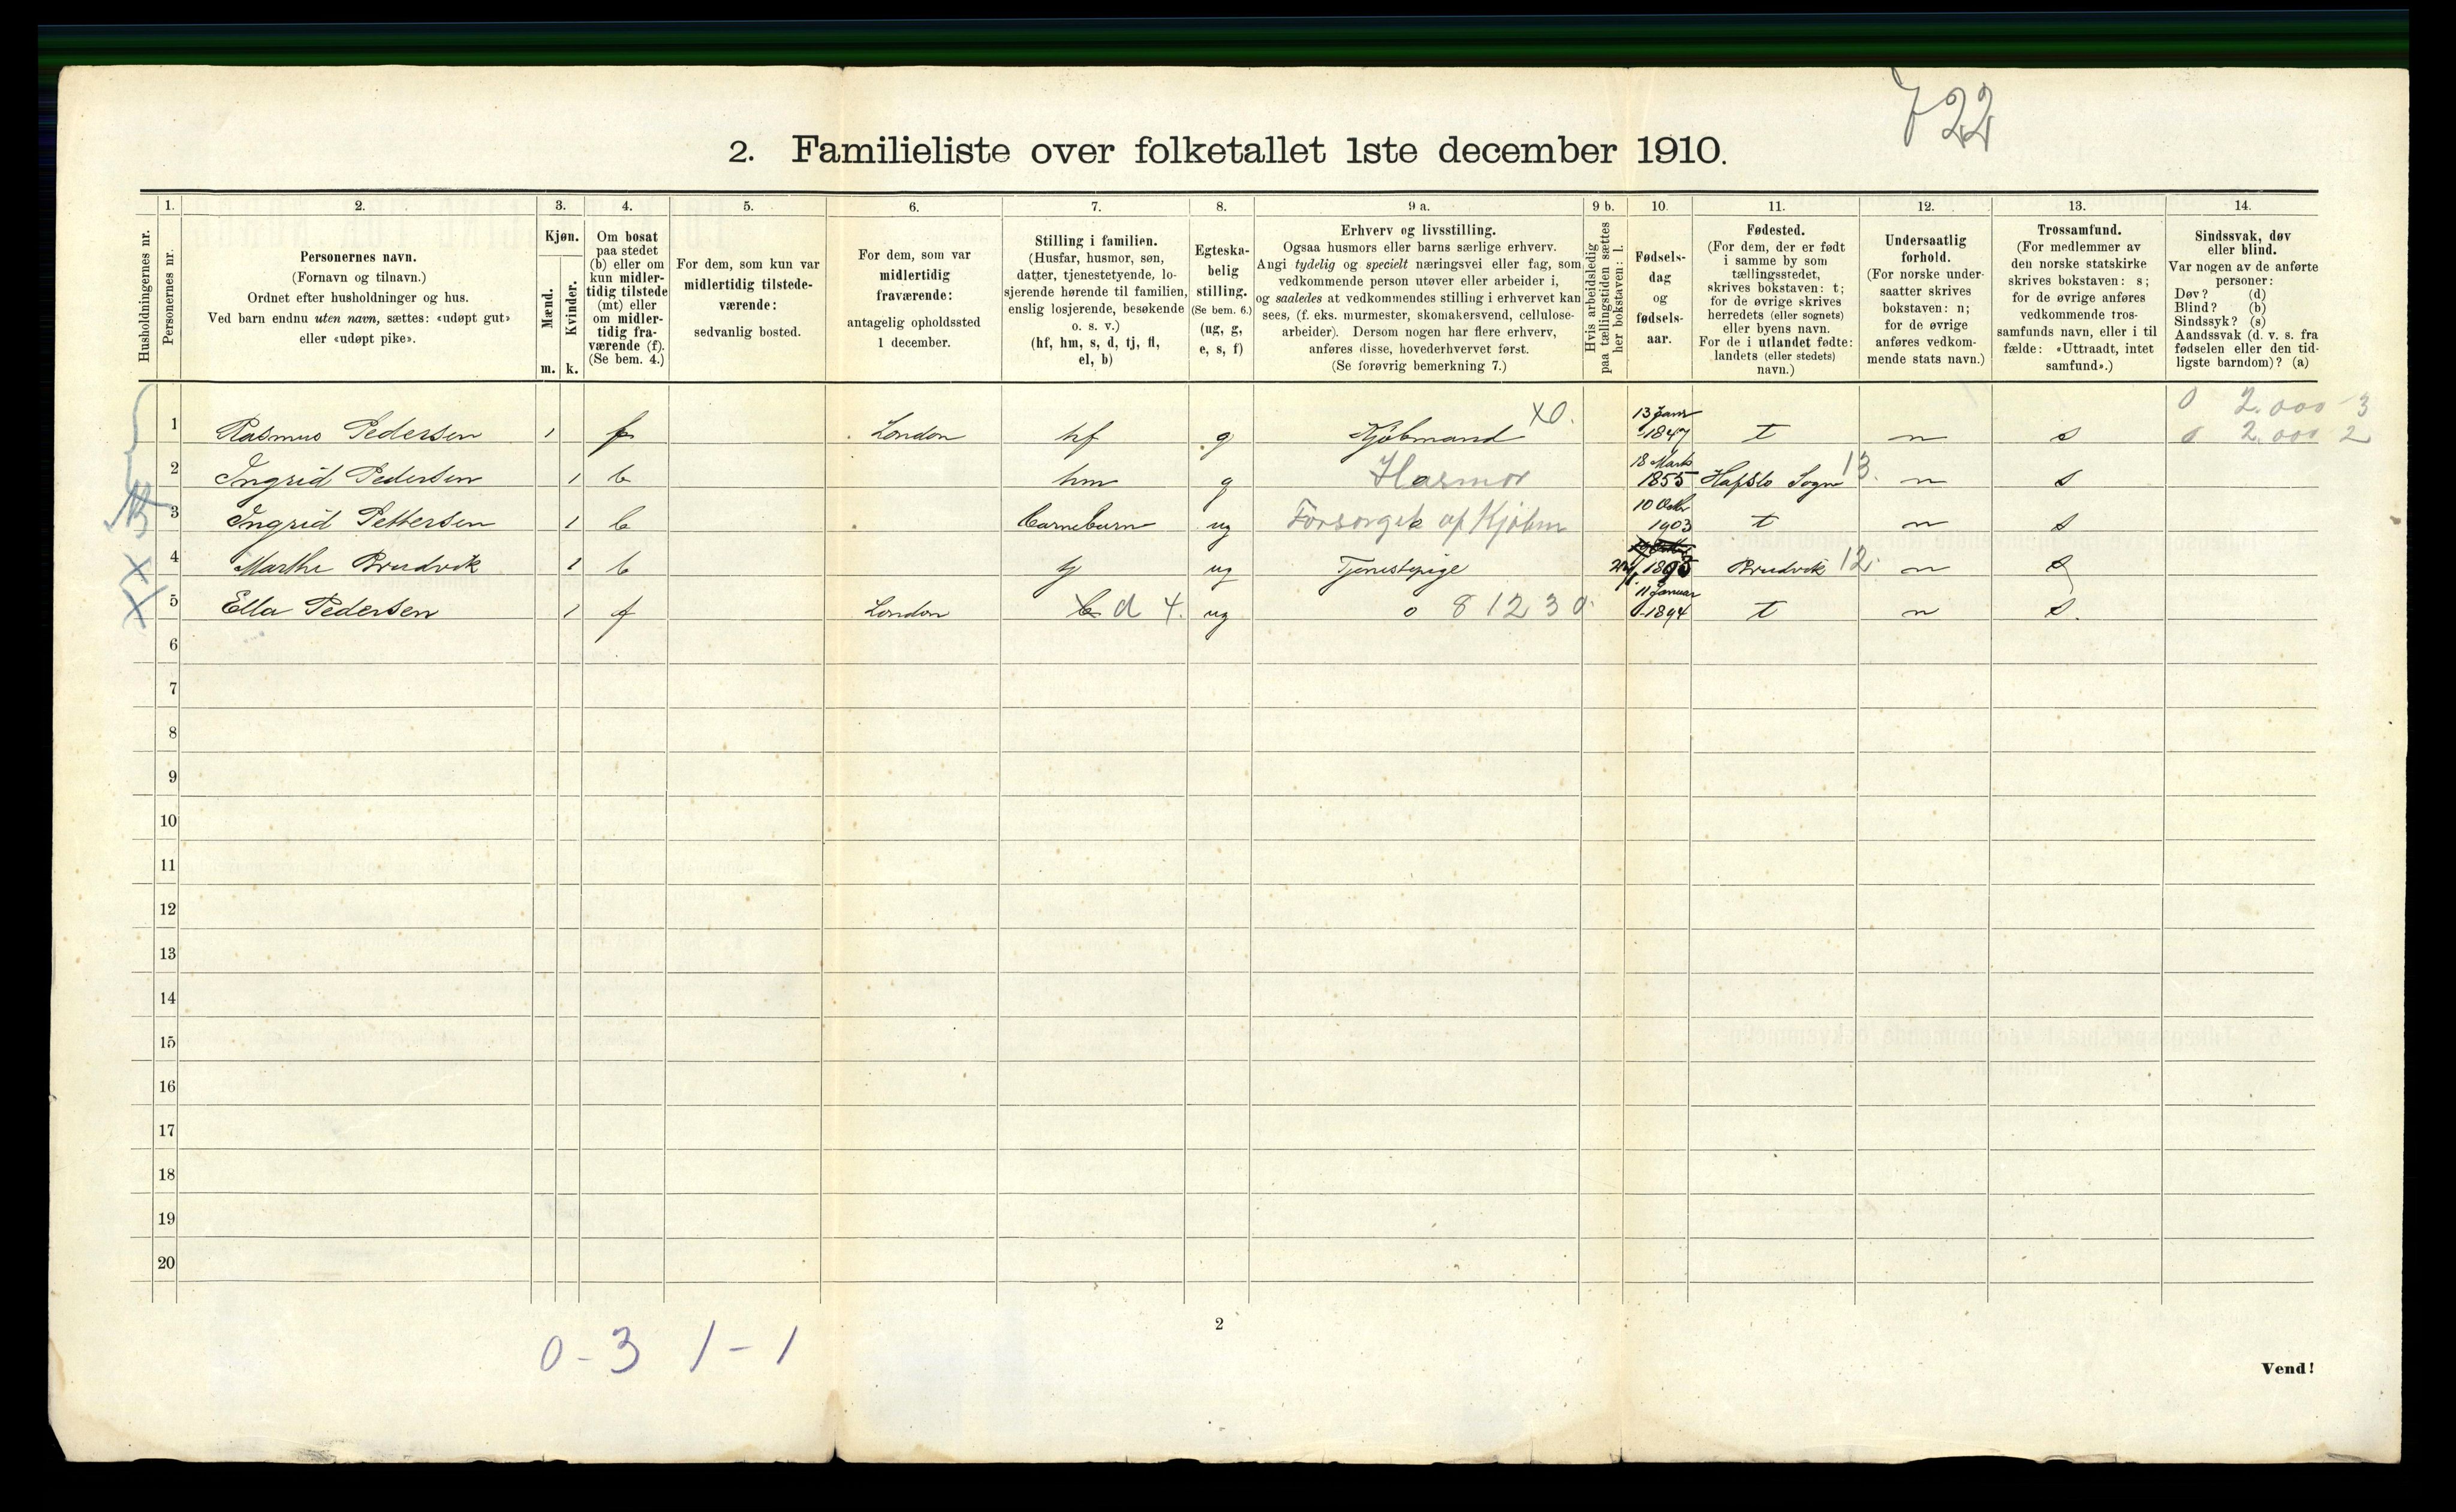 722
2. Familieliste over folketallet 1ste december 1910.
Husholdningernes nr.
1. Personernes nr.
2. Personernes navn.
(Fornavn og tilnavn.)
Ordnet efter husholdninger og hus.
Ved barn endnu uten navn, sættes: «udøpt gut»
eller «udøpt pike».
3. Kjøn.
Mænd. m.
Kvinder. k.
4. Om bosat
paa stedet
(b) eller om
kun midler-
tidig tilstede
(mt) eller
om midler-
tidig fra-
værende (f).
(Se bem. 4.)
5. For dem, som kun var
midlertidig tilstede-
værende:
sedvanlig bosted.
6. For dem, som var
midlertidig
fraværende:
antagelig opholdssted
1 december.
7. Stilling i familien.
(Husfar, husmor, søn,
datter, tjenestetyende, lo-
sjerende hørende til familien,
enslig losjerende, besøkende
o. s. v.)
(hf, hm, s, d, tj, fl,
el, b)
8. Egteska-
belig
stilling.
(Se bem. 6.)
(ug, g,
e, s, f)
9 a. Erhverv og livsstilling.
Ogsaa husmors eller barns særlige erhverv.
Angi tydelig og specielt næringsvei eller fag, som
vedkommende person utøver eller arbeider i,
og saaledes at vedkommendes stilling i erhvervet kan
sees, (f. eks. murmester, skomakersvend, cellulose-
arbeider). Dersom nogen har flere erhverv,
anføres disse, hovederhvervet først.
(Se forøvrig bemerkning 7.)
9 b. Hvis arbeidsledig
paa tællingstiden sættes
her bokstaven: l.
10. Fødsels-
dag
og
fødsels-
aar.
11. Fødested.
(For dem, der er født
i samme by som
tællingsstedet,
skrives bokstaven: t;
for de øvrige skrives
herredets (eller sognets)
eller byens navn.
For de i utlandet fødte:
landets (eller stedets)
navn.)
12. Undersaatlig
forhold.
(For norske under-
saatter skrives
bokstaven: n;
for de øvrige
anføres vedkom-
mende stats navn.)
13. Trossamfund.
(For medlemmer av
den norske statskirke
skrives bokstaven: s;
for de øvrige anføres
vedkommende tros-
samfunds navn, eller i til
fælde: «Uttraadt, intet
samfund».)
14. Sindssvak, døv
eller blind.
Var nogen av de anførte
personer:
Døv? (d)
Blind? (b)
Sindssyk? (s)
Aandssvak (d. v. s. fra
fødselen eller den tid-
ligste barndom)? (a)
1 Rasmus Pedersen 1 f London hf g Kjøbmand X0. 13 Janr 1847 t n s 0 2.000 3
0 2.000 2
2 Ingrid Pedersen 1 b hm g Husmor 18 Marts 1855 Hafslo Sogn 13. n s
3 Ingrid Pettersen 1 b barnebarn ug Forsørget af Kjøbm 10 Octbr 1903 t n s
4 Marthe Brudvik 1 b tj ug Tjenestepige 1895 Brudvik 12. n s
5 Ella Pedersen 1 f London b d 4. ug 0 8 12 3 0. 11 Januar 1894 t n s.
6
7
8
9
10
11
12
13
14
15
16
17
18
19
20
2
0 - 3 1 - 1
Vend!